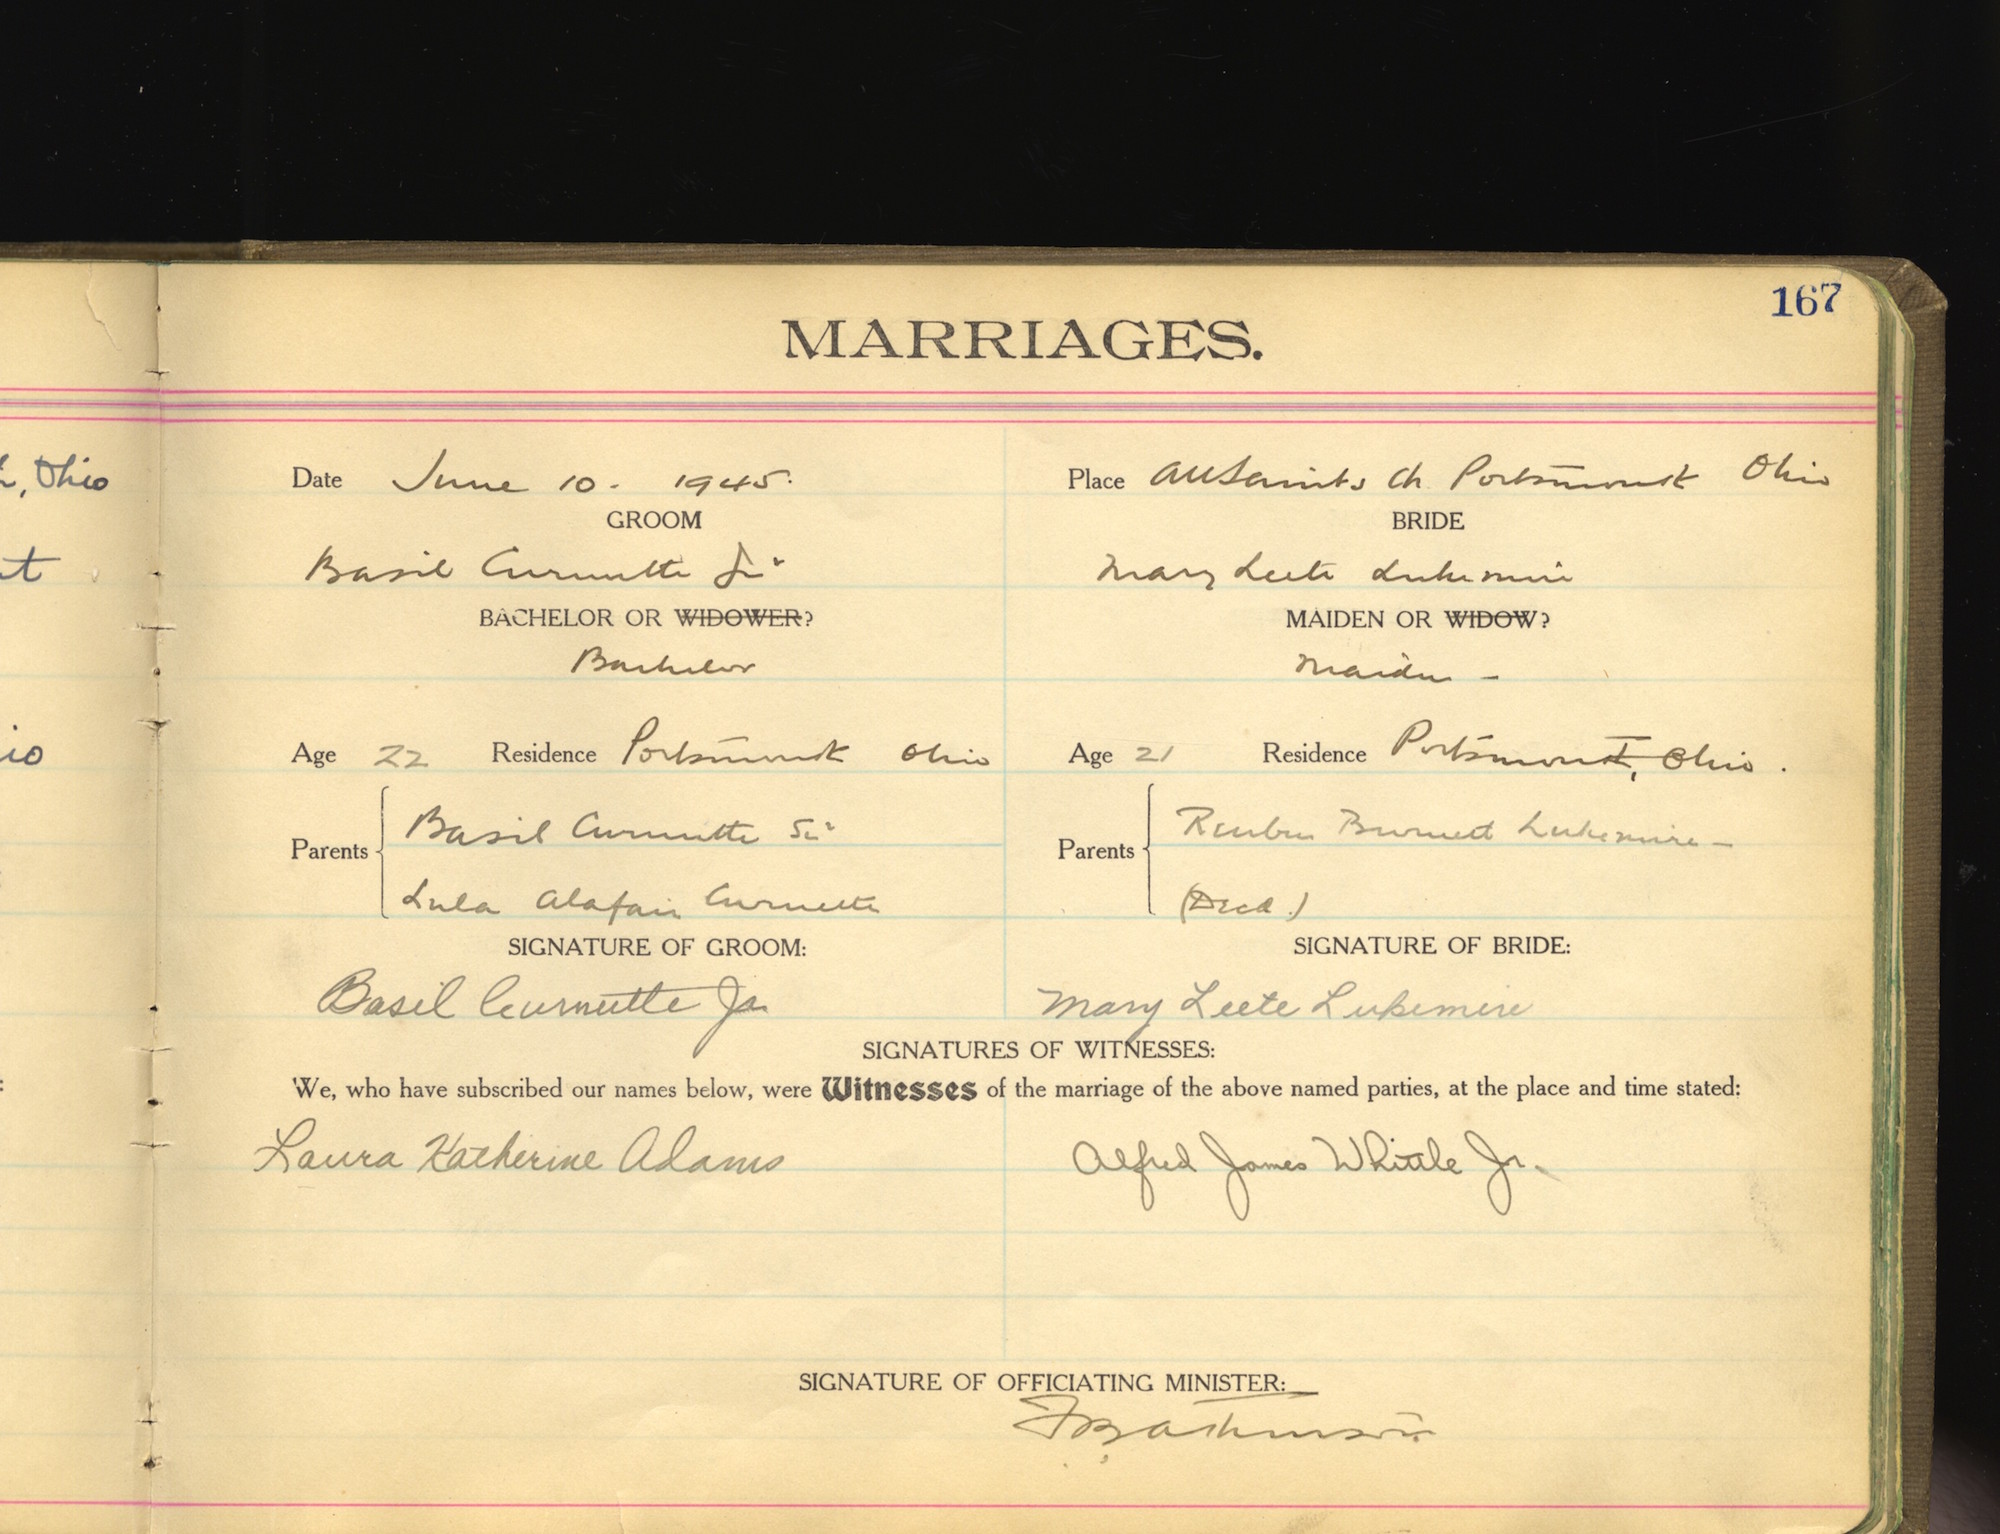 167
MARRIAGES.
, Ohio
Date June 10. 1945. Place All Saints Ch Portsmouth Ohio
GROOM BRIDE
Basil Curnutte Jr. Mary Leete Lukemire
BACHELOR OR WIDOWER? MAIDEN OR WIDOW?
Bachelor Maiden –
Age 22 Residence Portsmouth Ohio Age 21 Residence Portsmouth, Ohio.
Parents Basil Curnutte Sr. Parents Reuben Burnett Lukemire –
Lula Alafair Curnutte (Decd.)
SIGNATURE OF GROOM: SIGNATURE OF BRIDE:
Basil Curnutte Jr. Mary Leete Lukemire
SIGNATURES OF WITNESSES:
We, who have subscribed our names below, were Witnesses of the marriage of the above named parties, at the place and time stated:
Laura Katherine Adams Alfred James Whittle Jr.
SIGNATURE OF OFFICIATING MINISTER: